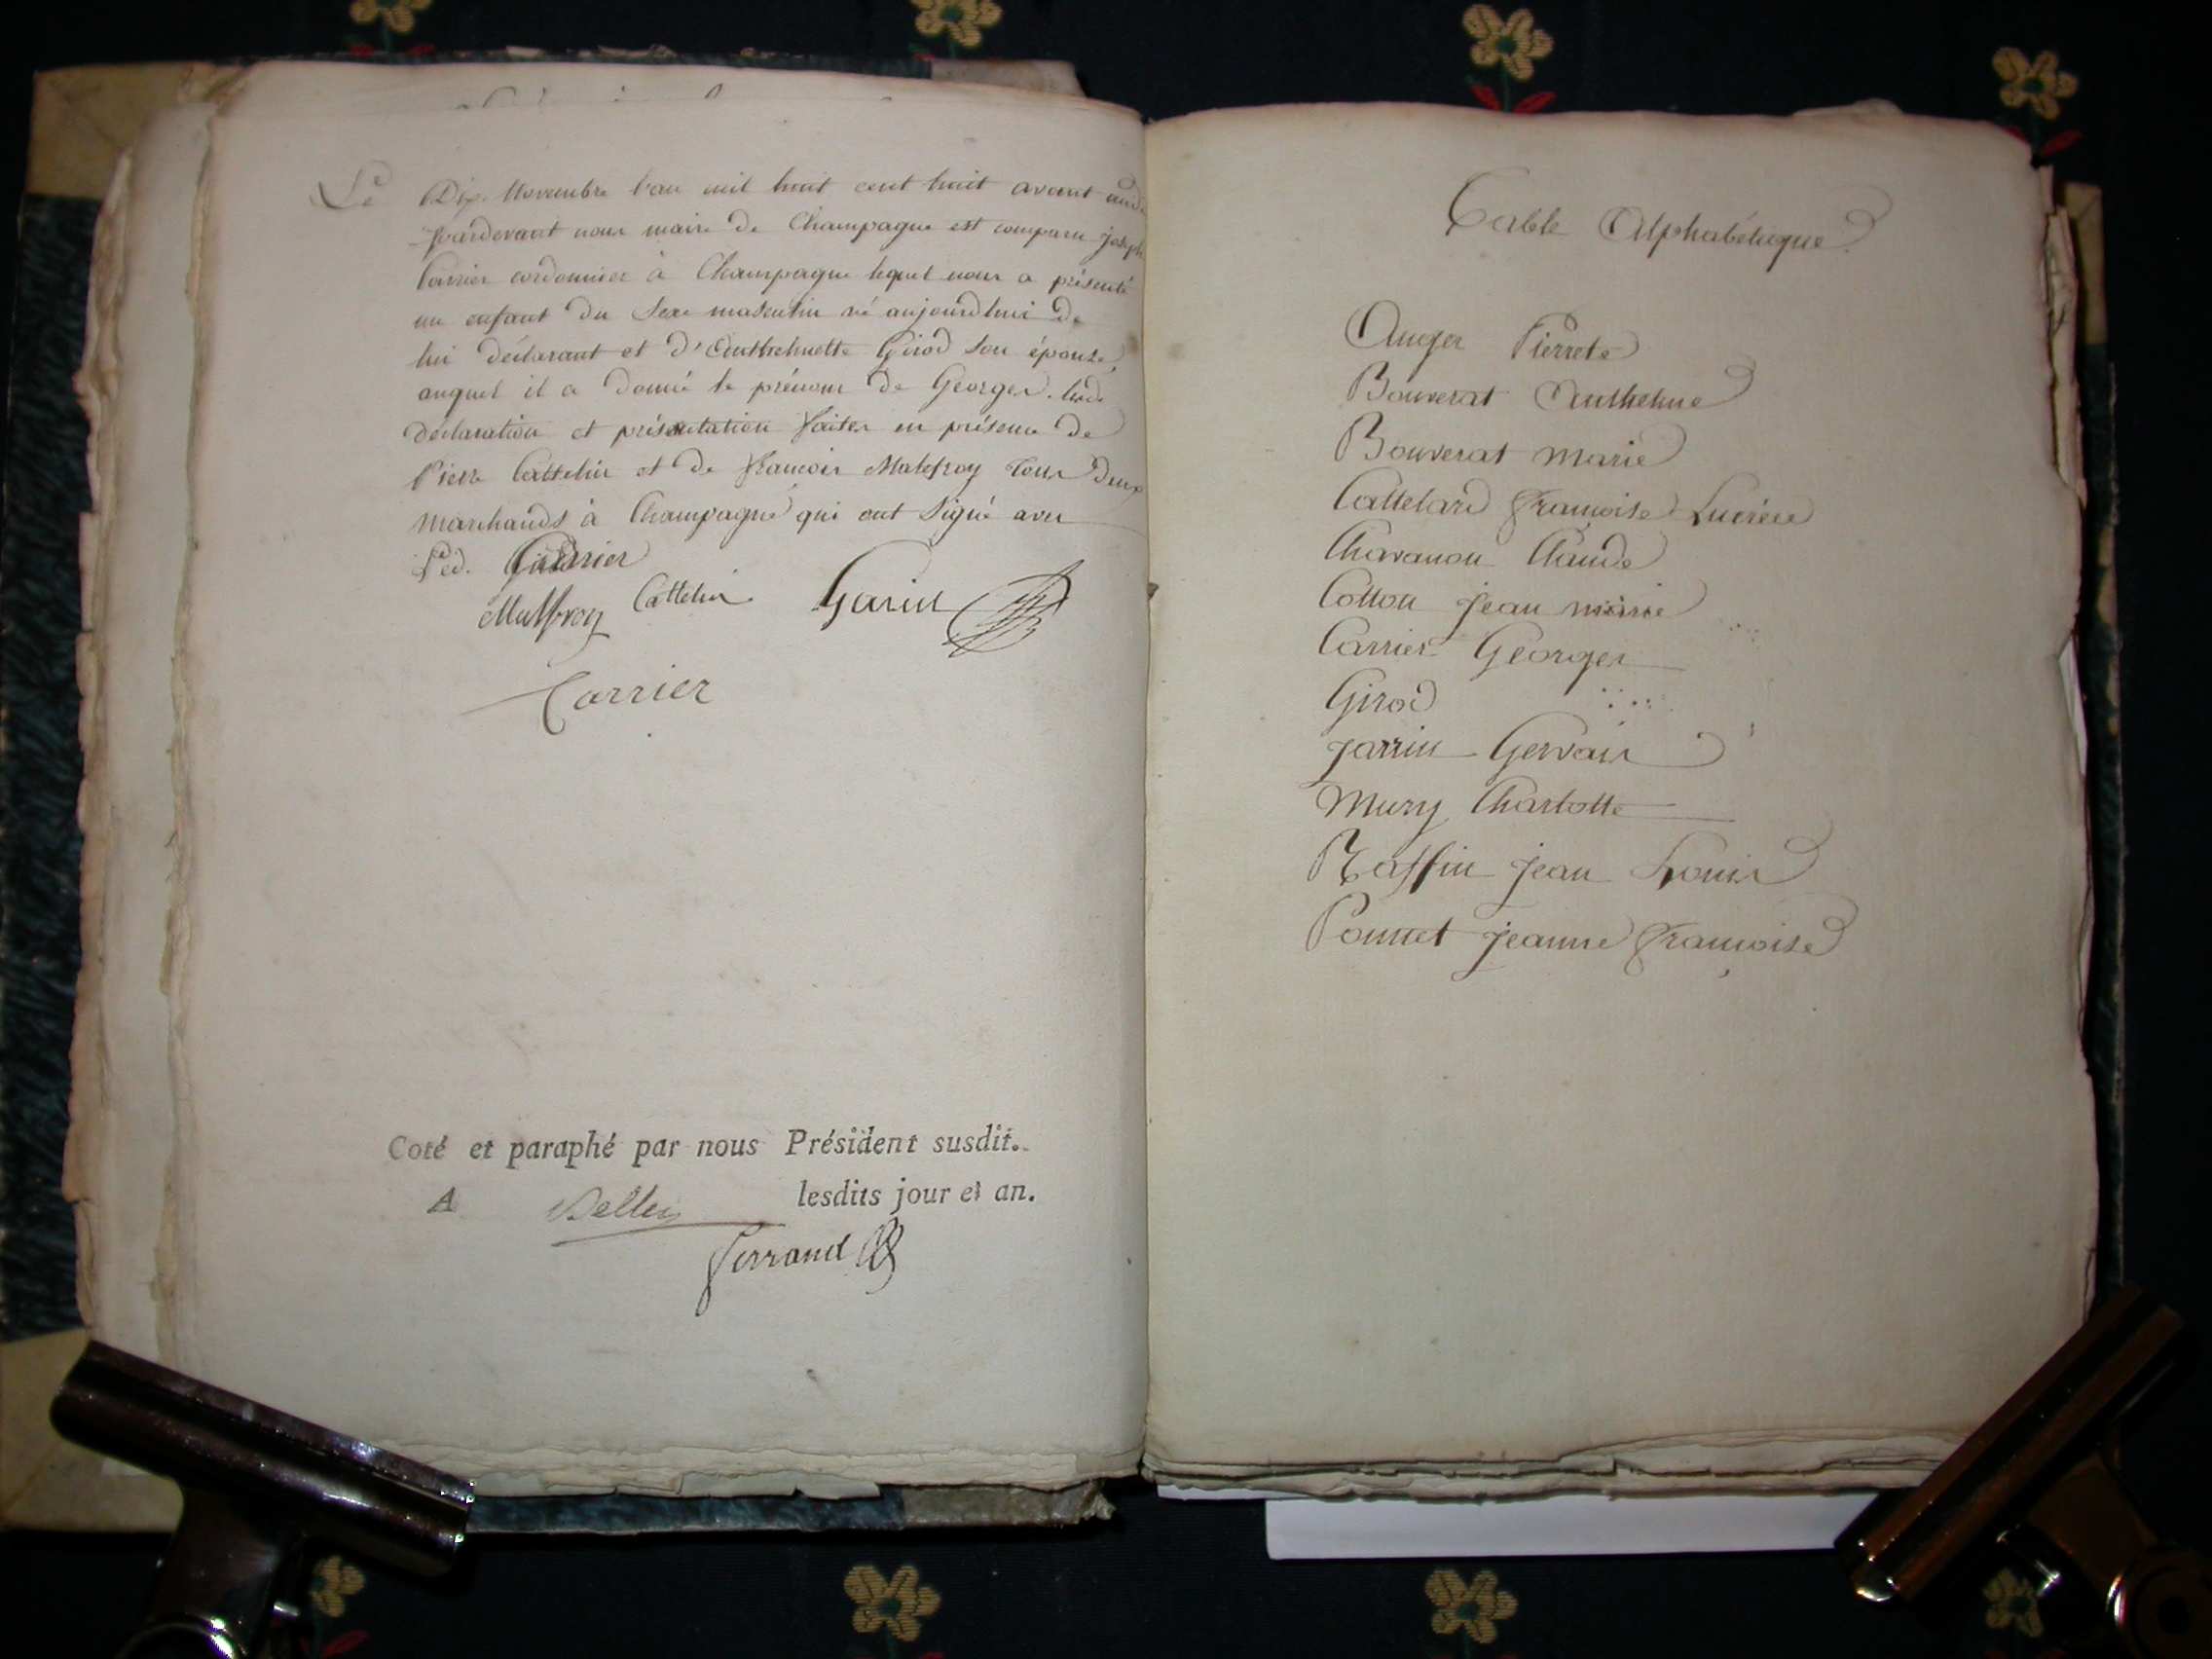 Le Dix Novembre l'an mil huit cent huit avant midi
pardevant nous maire de Champagne est comparu joseph
Carrier cordonnier à Champagne lequel nous a présenté
un enfant du Sexe masculin né aujourdhui de
lui déclarant et d'Anthelmette Girod son épouse,
auquel il a donné le prénom de Georges. lesd.
déclaration et présentation faites en présence de
Pierre Cattelin et de françois Malefroy tous deux
marchands à Champagne qui ont Signé avec
led. Carrier
Malfroy Cattelin Garin
Carrier
Coté et paraphé par nous Président susdit.
A Belley lesdits jour et an.
ferrand
Table Alphabétique
Auger Pierrete
Bouverat Anthelme
Bouverat marie
Cattelard françoise Lucrece
Chavanon Claude
Cotton jean marie
Carrier Georges
Girod
jarrin Gervais
Mury Charlotte
Raffin jean Louis
Ponnet jeanne françoise